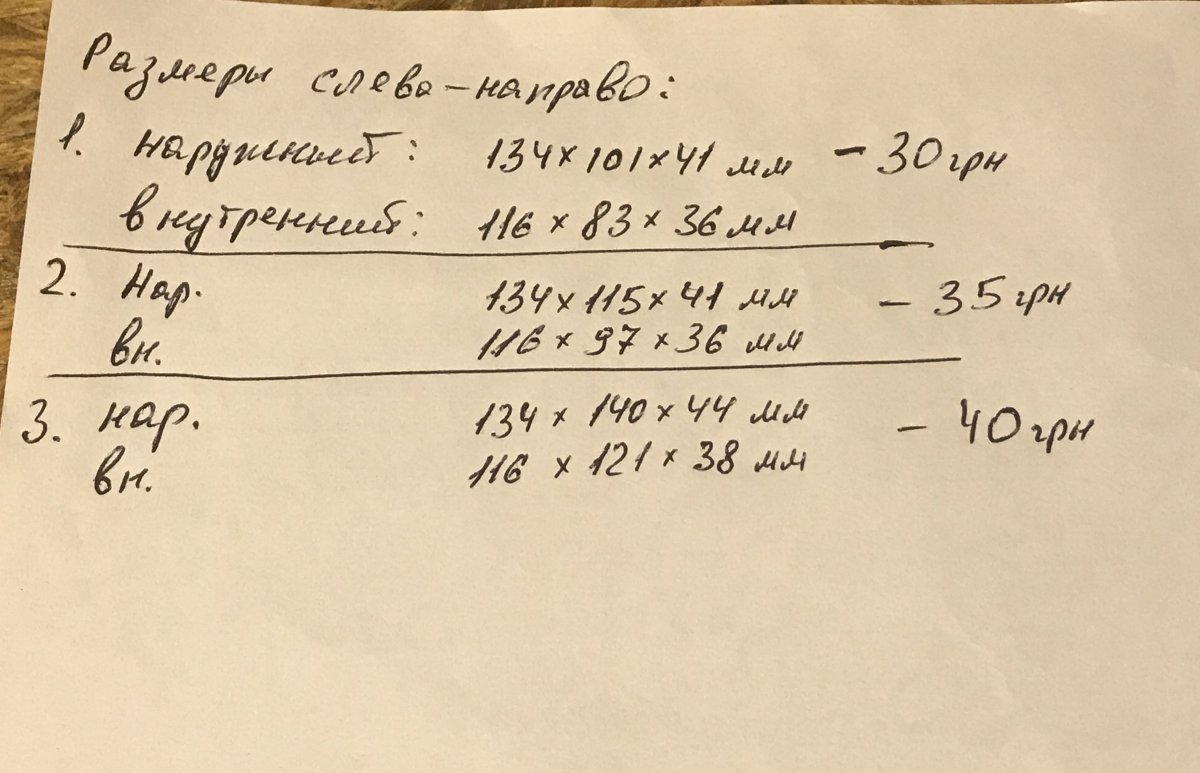 Размеры слева-направо:
1. наружний: 134×101×41 мм - 30 грн
внутренний: 116×83×36 мм
2. Нар. 134×115×41 мм - 35 грн
вн. 116×97×36 мм
3. нар. 134×140×44 мм - 40 грн
вн. 116×121×38 мм